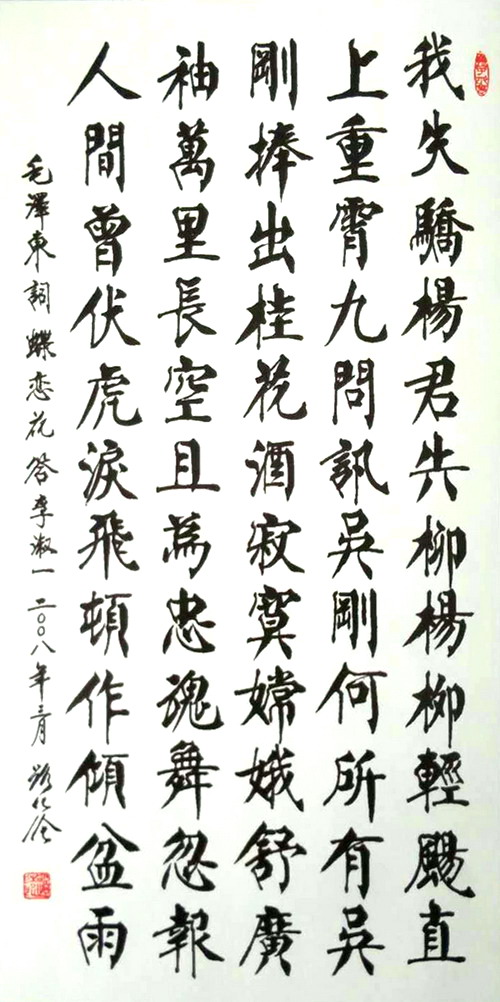 我失驕楊君失柳楊柳輕颺直
上重霄九問訊吳剛何所有吳
剛捧出桂花酒寂寞嫦娥舒廣
袖萬里長空且為忠魂舞忽報
人間曾伏虎淚飛頓作傾盆雨
毛澤東詞蝶恋花答李淑一 二〇〇八年三月